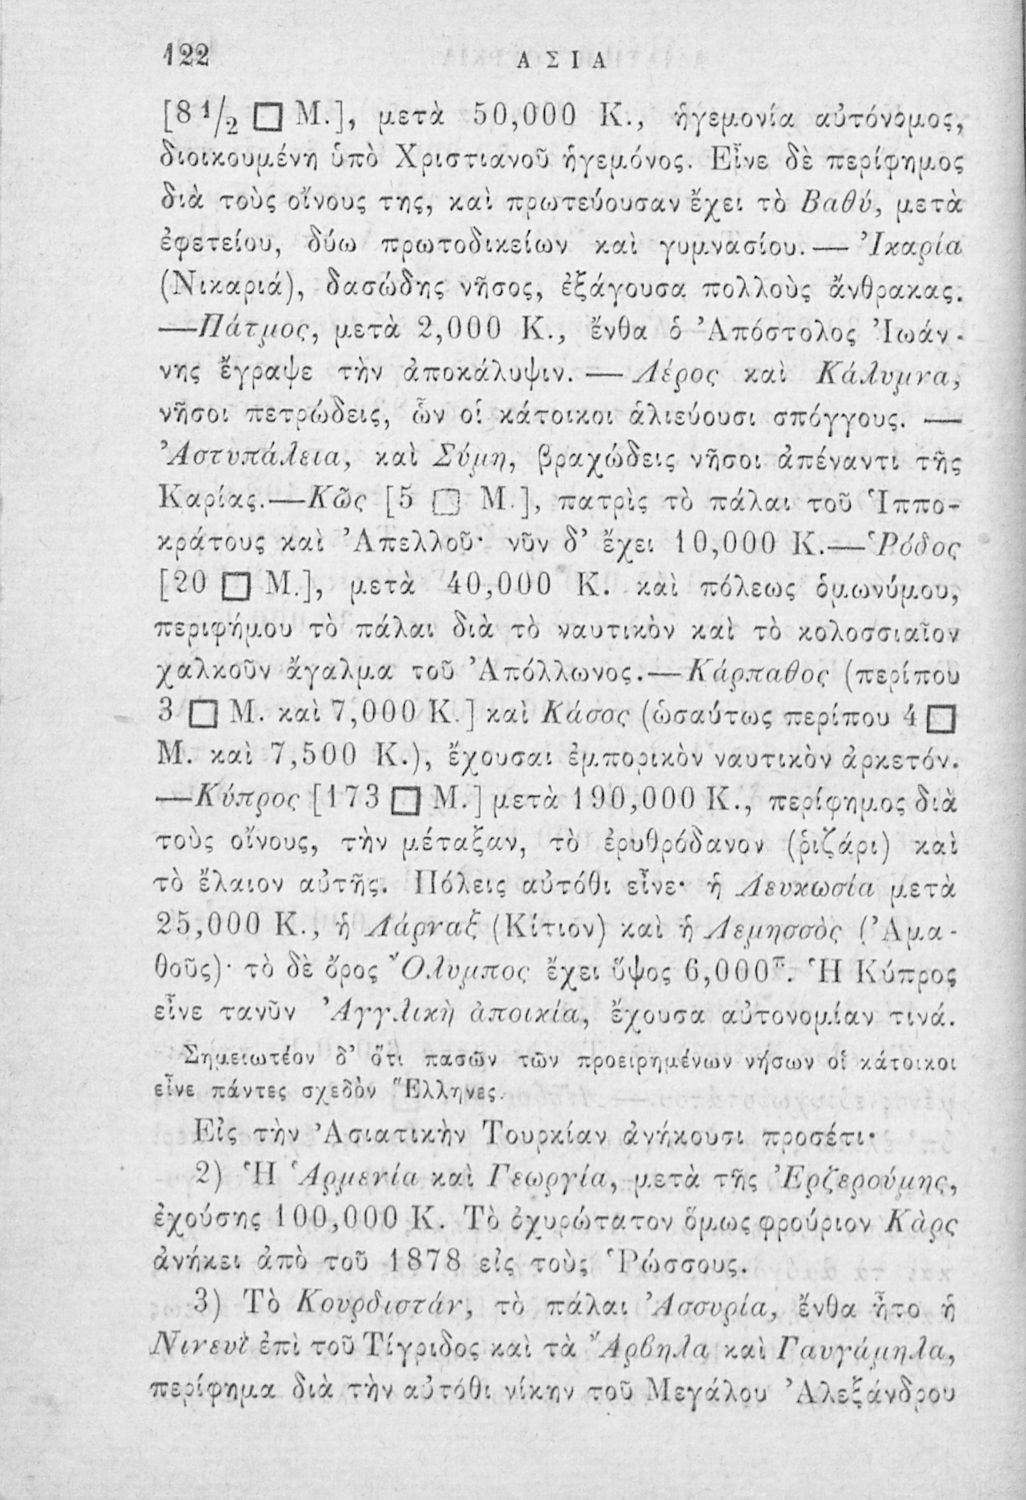 122 ΑΣΙΑ
[8 1/2 □ Μ.], μετὰ 50,000 Κ., ἡγεμονία αὐτόνομος,
διοικουμένη ὑπὸ Χριστιανοῦ ἡγεμόνος. Εἶνε δὲ περίφημος
διὰ τοὺς οἴνους της, καὶ πρωτεύουσαν ἔχει τὸ Βαθύ, μετὰ
ἐφετείου, δύω πρωτοδικείων καὶ γυμνασίου. — Ἰκαρία
(Νικαριά), δασώδης νῆσος, ἐξάγουσα πολλοὺς ἄνθρακας.
—Πάτμος, μετὰ 2,000 Κ., ἔνθα ὁ Ἀπόστολος Ἰωάν-
νης ἔγραψε τὴν ἀποκάλυψιν. — Λέρος καὶ Κάλυμνα,
νῆσοι πετρώδεις, ὧν οἱ κάτοικοι ἁλιεύουσι σπόγγους. —
Ἀστυπάλεια, καὶ Σύμη, βραχώδεις νῆσοι ἀπέναντι τῆς
Καρίας.—Κῶς [5 □ Μ.], πατρὶς τὸ πάλαι τοῦ Ἱππο-
κράτους καὶ Ἀπελλοῦ· νῦν δ' ἔχει 10,000 Κ.—Ῥόδος
[20 □ Μ.], μετὰ 40,000 Κ. καὶ πόλεως ὁμωνύμου,
περιφήμου τὸ πάλαι διὰ τὸ ναυτικὸν καὶ τὸ κολοσσιαῖον
χαλκοῦν ἄγαλμα τοῦ Ἀπόλλωνος.—Κάρπαθος (περίπου
3 □ Μ. καὶ 7,000 Κ.] καὶ Κάσος (ὡσαύτως περίπου 4 □
Μ. καὶ 7,500 Κ.), ἔχουσαι ἐμπορικὸν ναυτικὸν ἀρκετόν.
—Κύπρος [173 □ Μ.] μετὰ 190,000 Κ., περίφημος διὰ
τοὺς οἴνους, τὴν μέταξαν, τὸ ἐρυθρόδανον (ῥιζάρι) καὶ
τὸ ἔλαιον αὐτῆς. Πόλεις αὐτόθι εἶνε· ἡ Λευκωσία μετὰ
25,000 Κ., ἡ Λάρναξ (Κίτιον) καὶ ἡ Λεμησσὸς (Ἀμα-
θοῦς)· τὸ δὲ ὄρος Ὄλυμπος ἔχει ὕψος 6,000π. Ἡ Κύπρος
εἶνε τανῦν Ἀγγλικὴ ἀποικία, ἔχουσα αὐτονομίαν τινά.
Σημειωτέον δ' ὅτι πασῶν τῶν προειρημένων νήσων οἱ κάτοικοι
εἶνε πάντες σχεδὸν Ἕλληνες.
Εἰς τὴν Ἀσιατικὴν Τουρκίαν ἀνήκουσι προσέτι·
2) Ἡ Ἁρμενία καὶ Γεωργία, μετὰ τῆς Ἐρζερούμης,
ἐχούσης 100,000 Κ. Τὸ ὀχυρώτατον ὅμως φρούριον Κὰρς
ἀνήκει ἀπὸ τοῦ 1878 εἰς τοὺς Ῥώσσους.
3) Τὸ Κουρδιστάν, τὸ πάλαι Ἀσσυρία, ἔνθα ἦτο ἡ
Νινευῒ ἐπὶ τοῦ Τίγριδος καὶ τὰ Ἄρβηλα καὶ Γαυγάμηλα,
περίφημα διὰ τὴν αὐτόθι νίκην τοῦ Μεγάλου Ἀλεξάνδρου